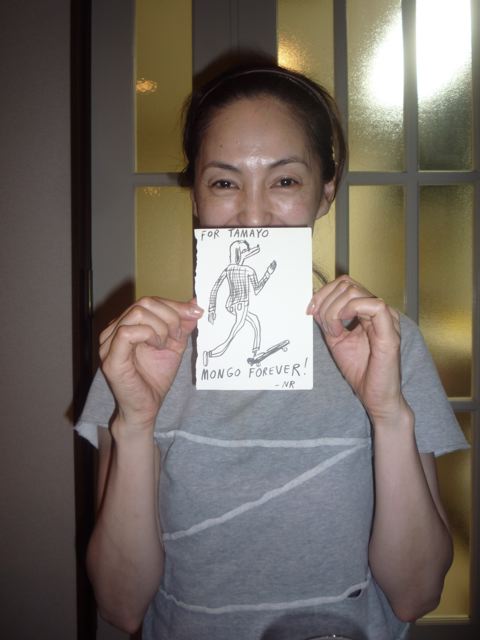 FOR TAMAYO
MONGO FOREVER!
-NR